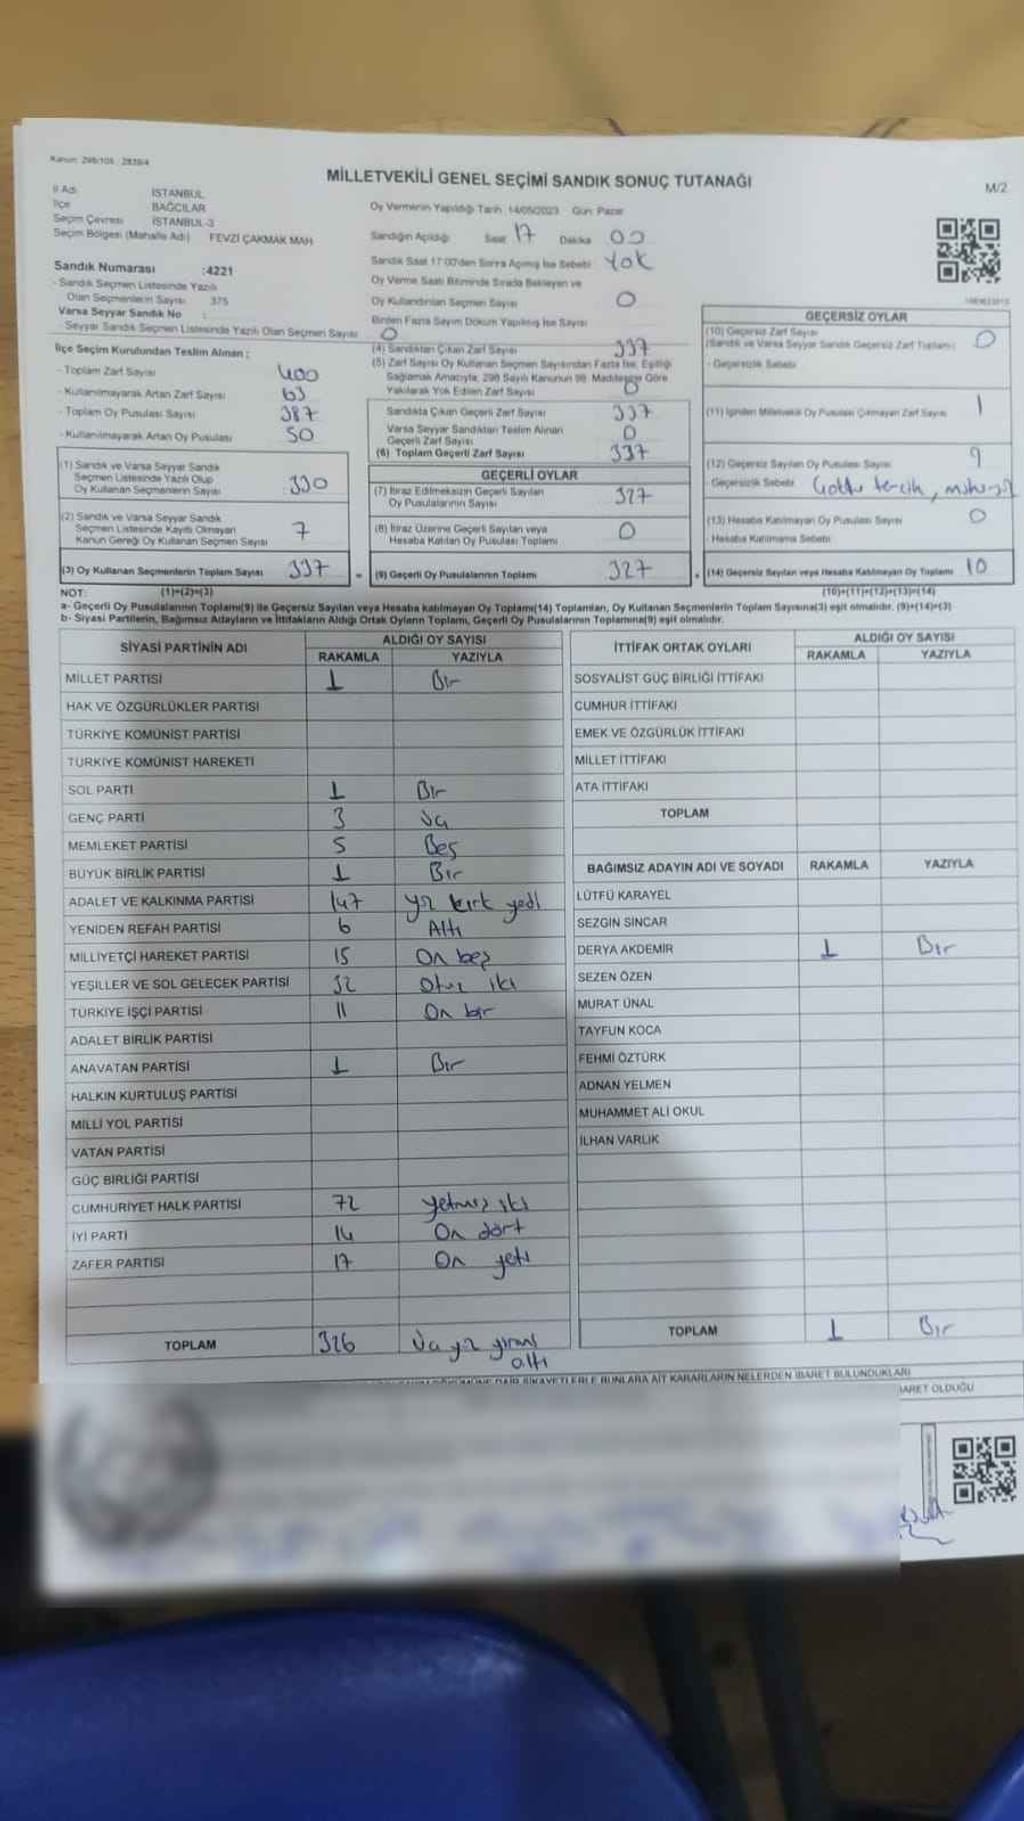 Kanun: 298/105 ; 2839/4
MİLLETVEKİLİ GENEL SEÇİMİ SANDIK SONUÇ TUTANAĞI
M/2
İl Adı İSTANBUL
İlçe BAĞCILAR
Seçim Çevresi İSTANBUL-3
Seçim Bölgesi (Mahalle Adı) FEVZİ ÇAKMAK MAH
Sandık Numarası :4221
- Sandık Seçmen Listesinde Yazılı
Olan Seçmenlerin Sayısı 375
Varsa Seyyar Sandık No :
- Seyyar Sandık Seçmen Listesinde Yazılı Olan Seçmen Sayısı
Oy Vermenin Yapıldığı Tarih 14/05/2023 Gün: Pazar
Sandığın Açıldığı Saat 17 Dakika 00
Sandık Saat 17:00'den Sonra Açılmış İse Sebebi Yok
Oy Verme Saati Bitiminde Sırada Bekleyen ve
Oy Kullandırılan Seçmen Sayısı 0
Birden Fazla Sayım Döküm Yapılmış İse Sayısı 0
İlçe Seçim Kurulundan Teslim Alınan ;
- Toplam Zarf Sayısı 400
- Kullanılmayarak Artan Zarf Sayısı 63
- Toplam Oy Pusulası Sayısı 387
- Kullanılmayarak Artan Oy Pusulası 50
(1) Sandık ve Varsa Seyyar Sandık
Seçmen Listesinde Yazılı Olup
Oy Kullanan Seçmenlerin Sayısı 330
(2) Sandık ve Varsa Seyyar Sandık
Seçmen Listesinde Kayıtlı Olmayan
Kanun Gereği Oy Kullanan Seçmen Sayısı 7
(3) Oy Kullanan Seçmenlerin Toplam Sayısı 337
(4) Sandıktan Çıkan Zarf Sayısı 337
(5) Zarf Sayısı Oy Kullanan Seçmen Sayısından Fazla İse, Eşitliği
Sağlamak Amacıyla, 298 Sayılı Kanunun 98. Maddesine Göre
Yakılarak Yok Edilen Zarf Sayısı 0
Sandıkta Çıkan Geçerli Zarf Sayısı 337
Varsa Seyyar Sandıktan Teslim Alınan
Geçerli Zarf Sayısı 0
(6) Toplam Geçerli Zarf Sayısı 337
GEÇERLİ OYLAR
(7) İtiraz Edilmeksizin Geçerli Sayılan
Oy Pusulalarının Sayısı 327
(8) İtiraz Üzerine Geçerli Sayılan veya
Hesaba Katılan Oy Pusulası Toplamı 0
= (9) Geçerli Oy Pusulalarının Toplamı 327
GEÇERSİZ OYLAR
(10) Geçersiz Zarf Sayısı
(Sandık ve Varsa Seyyar Sandık Geçersiz Zarf Toplamı) 0
- Geçersizlik Sebebi
(11) İçinden Milletvekili Oy Pusulası Çıkmayan Zarf Sayısı 1
(12) Geçersiz Sayılan Oy Pusulası Sayısı 9
Geçersizlik Sebebi
(13) Hesaba Katılmayan Oy Pusulası Sayısı 0
- Hesaba Katılmama Sebebi
+ (14) Geçersiz Sayılan veya Hesaba Katılmayan Oy Toplamı 10
NOT: (1)+(2)=(3) (10)+(11)+(12)+(13)=(14)
a- Geçerli Oy Pusulalarının Toplamı(9) ile Geçersiz Sayılan veya Hesaba katılmayan Oy Toplamı(14) Toplamları, Oy Kullanan Seçmenlerin Toplam Sayısına(3) eşit olmalıdır. (9)+(14)=(3)
b- Siyasi Partilerin, Bağımsız Adayların ve İttifakların Aldığı Ortak Oyların Toplamı, Geçerli Oy Pusulalarının Toplamına(9) eşit olmalıdır.
SİYASİ PARTİNİN ADI ALDIĞI OY SAYISI
RAKAMLA YAZIYLA
MİLLET PARTİSİ 1 Bir
HAK VE ÖZGÜRLÜKLER PARTİSİ
TÜRKİYE KOMÜNİST PARTİSİ
TÜRKİYE KOMÜNİST HAREKETİ
SOL PARTİ 1 Bir
GENÇ PARTİ 3 Üç
MEMLEKET PARTİSİ 5 Beş
BÜYÜK BİRLİK PARTİSİ 1 Bir
ADALET VE KALKINMA PARTİSİ 147 yüz kırk yedi
YENİDEN REFAH PARTİSİ 6 Altı
MİLLİYETÇİ HAREKET PARTİSİ 15 On beş
YEŞİLLER VE SOL GELECEK PARTİSİ 32 Otuz iki
TÜRKİYE İŞÇİ PARTİSİ 11 On bir
ADALET BİRLİK PARTİSİ
ANAVATAN PARTİSİ 1 Bir
HALKIN KURTULUŞ PARTİSİ
MİLLİ YOL PARTİSİ
VATAN PARTİSİ
GÜÇ BİRLİĞİ PARTİSİ
CUMHURİYET HALK PARTİSİ 72 yetmiş iki
İYİ PARTİ 14 On dört
ZAFER PARTİSİ 17 On yedi
TOPLAM 326 Üç yüz yirmi altı
İTTİFAK ORTAK OYLARI ALDIĞI OY SAYISI
RAKAMLA YAZIYLA
SOSYALİST GÜÇ BİRLİĞİ İTTİFAKI
CUMHUR İTTİFAKI
EMEK VE ÖZGÜRLÜK İTTİFAKI
MİLLET İTTİFAKI
ATA İTTİFAKI
TOPLAM
BAĞIMSIZ ADAYIN ADI VE SOYADI RAKAMLA YAZIYLA
LÜTFÜ KARAYEL
SEZGİN SİNCAR
DERYA AKDEMİR 1 Bir
SEZEN ÖZEN
MURAT ÜNAL
TAYFUN KOCA
FEHMİ ÖZTÜRK
ADNAN YELMEN
MUHAMMET ALİ OKUL
İLHAN VARLIK
TOPLAM 1 Bir
ŞİKAYETLERLE BUNLARA AİT KARARLARIN NELERDEN İBARET BULUNDUKLARI
OLDUĞU